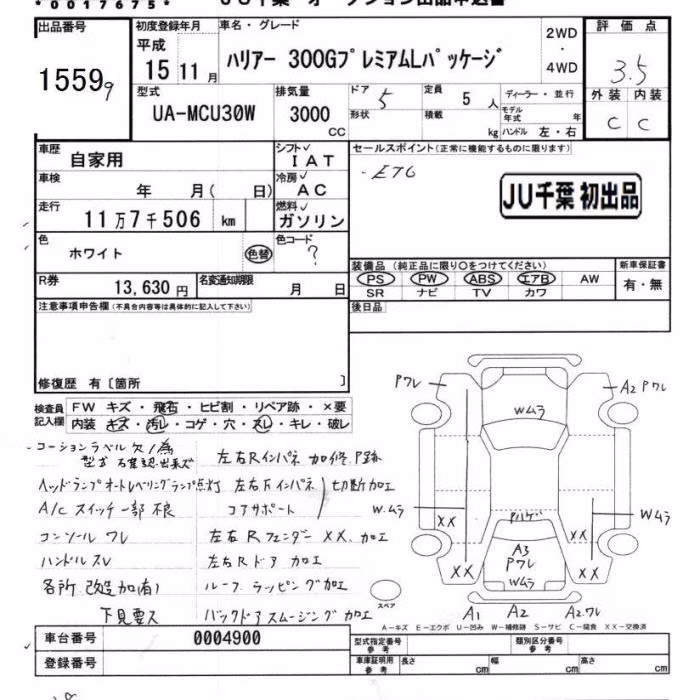 *0017675*
JU千葉 オークション出品申込書
出品番号 1559 9
初度登録年月 平成 15年11月
車名・グレード ハリアー 300GプレミアムLパッケージ
2WD ・ 4WD
評価点 3.5
外装 内装
C C
型式 UA-MCU30W
排気量 3000 CC
ドア 5
定員 5人
ディーラー・並行
形状 積載 kg
モデル年式 年
ハンドル 左・右
車歴 自家用
シフト IAT
セールスポイント(正常に機能するものに限ります)
・ETC
JU千葉 初出品
車検 年 月( 日)
冷房 AC
走行 11万7千506 km
燃料 ガソリン
色 ホワイト 色替
色コード ?
装備品 (純正品に限り〇をつけてください)
新車保証書
PS PW ABS エアB AW
有・無
SR ナビ TV カワ
R券 13,630円
名変通知期限 月 日
後日品
注意事項申告欄(不具合内容等は具体的に記入して下さい)
修復歴 有〔箇所 〕
検査員記入欄
FW キズ・飛石・ヒビ割・リペア跡・×要
内装・キズ・汚レ・コゲ・穴・スレ・キレ・破レ
コーションラベル欠ノ為
型式 確認出来ズ
ヘッドランプオートレベリングランプ点灯
A/Cスイッチ一部不良
コンソール ワレ
ハンドル スレ
各所 改造加(有)
下見要ス
左右Rインパネ 加修 P跡
左右Fインパネ 切断加工
コアサポート
左右Rフェンダー XX.加工
左右Rドア 加工
ルーフ ラッピング加工
バックドア スムージング加工
Pワレ
A2 Pワレ
Wムラ
W.ムラ
Wムラ
XX
XX
Pハゲ
A3
Pワレ
Wムラ
XX
XX
スペア
A1 A2 A2.ワレ
A-キズ E-エクボ U-凹み W-補修跡 S-サビ C-腐食 XX-交換済
車台番号 0004900
登録番号
型式指定番号 参考
類別区分番号 参考
車庫証明用 参考
長さ cm 幅 cm 高さ cm